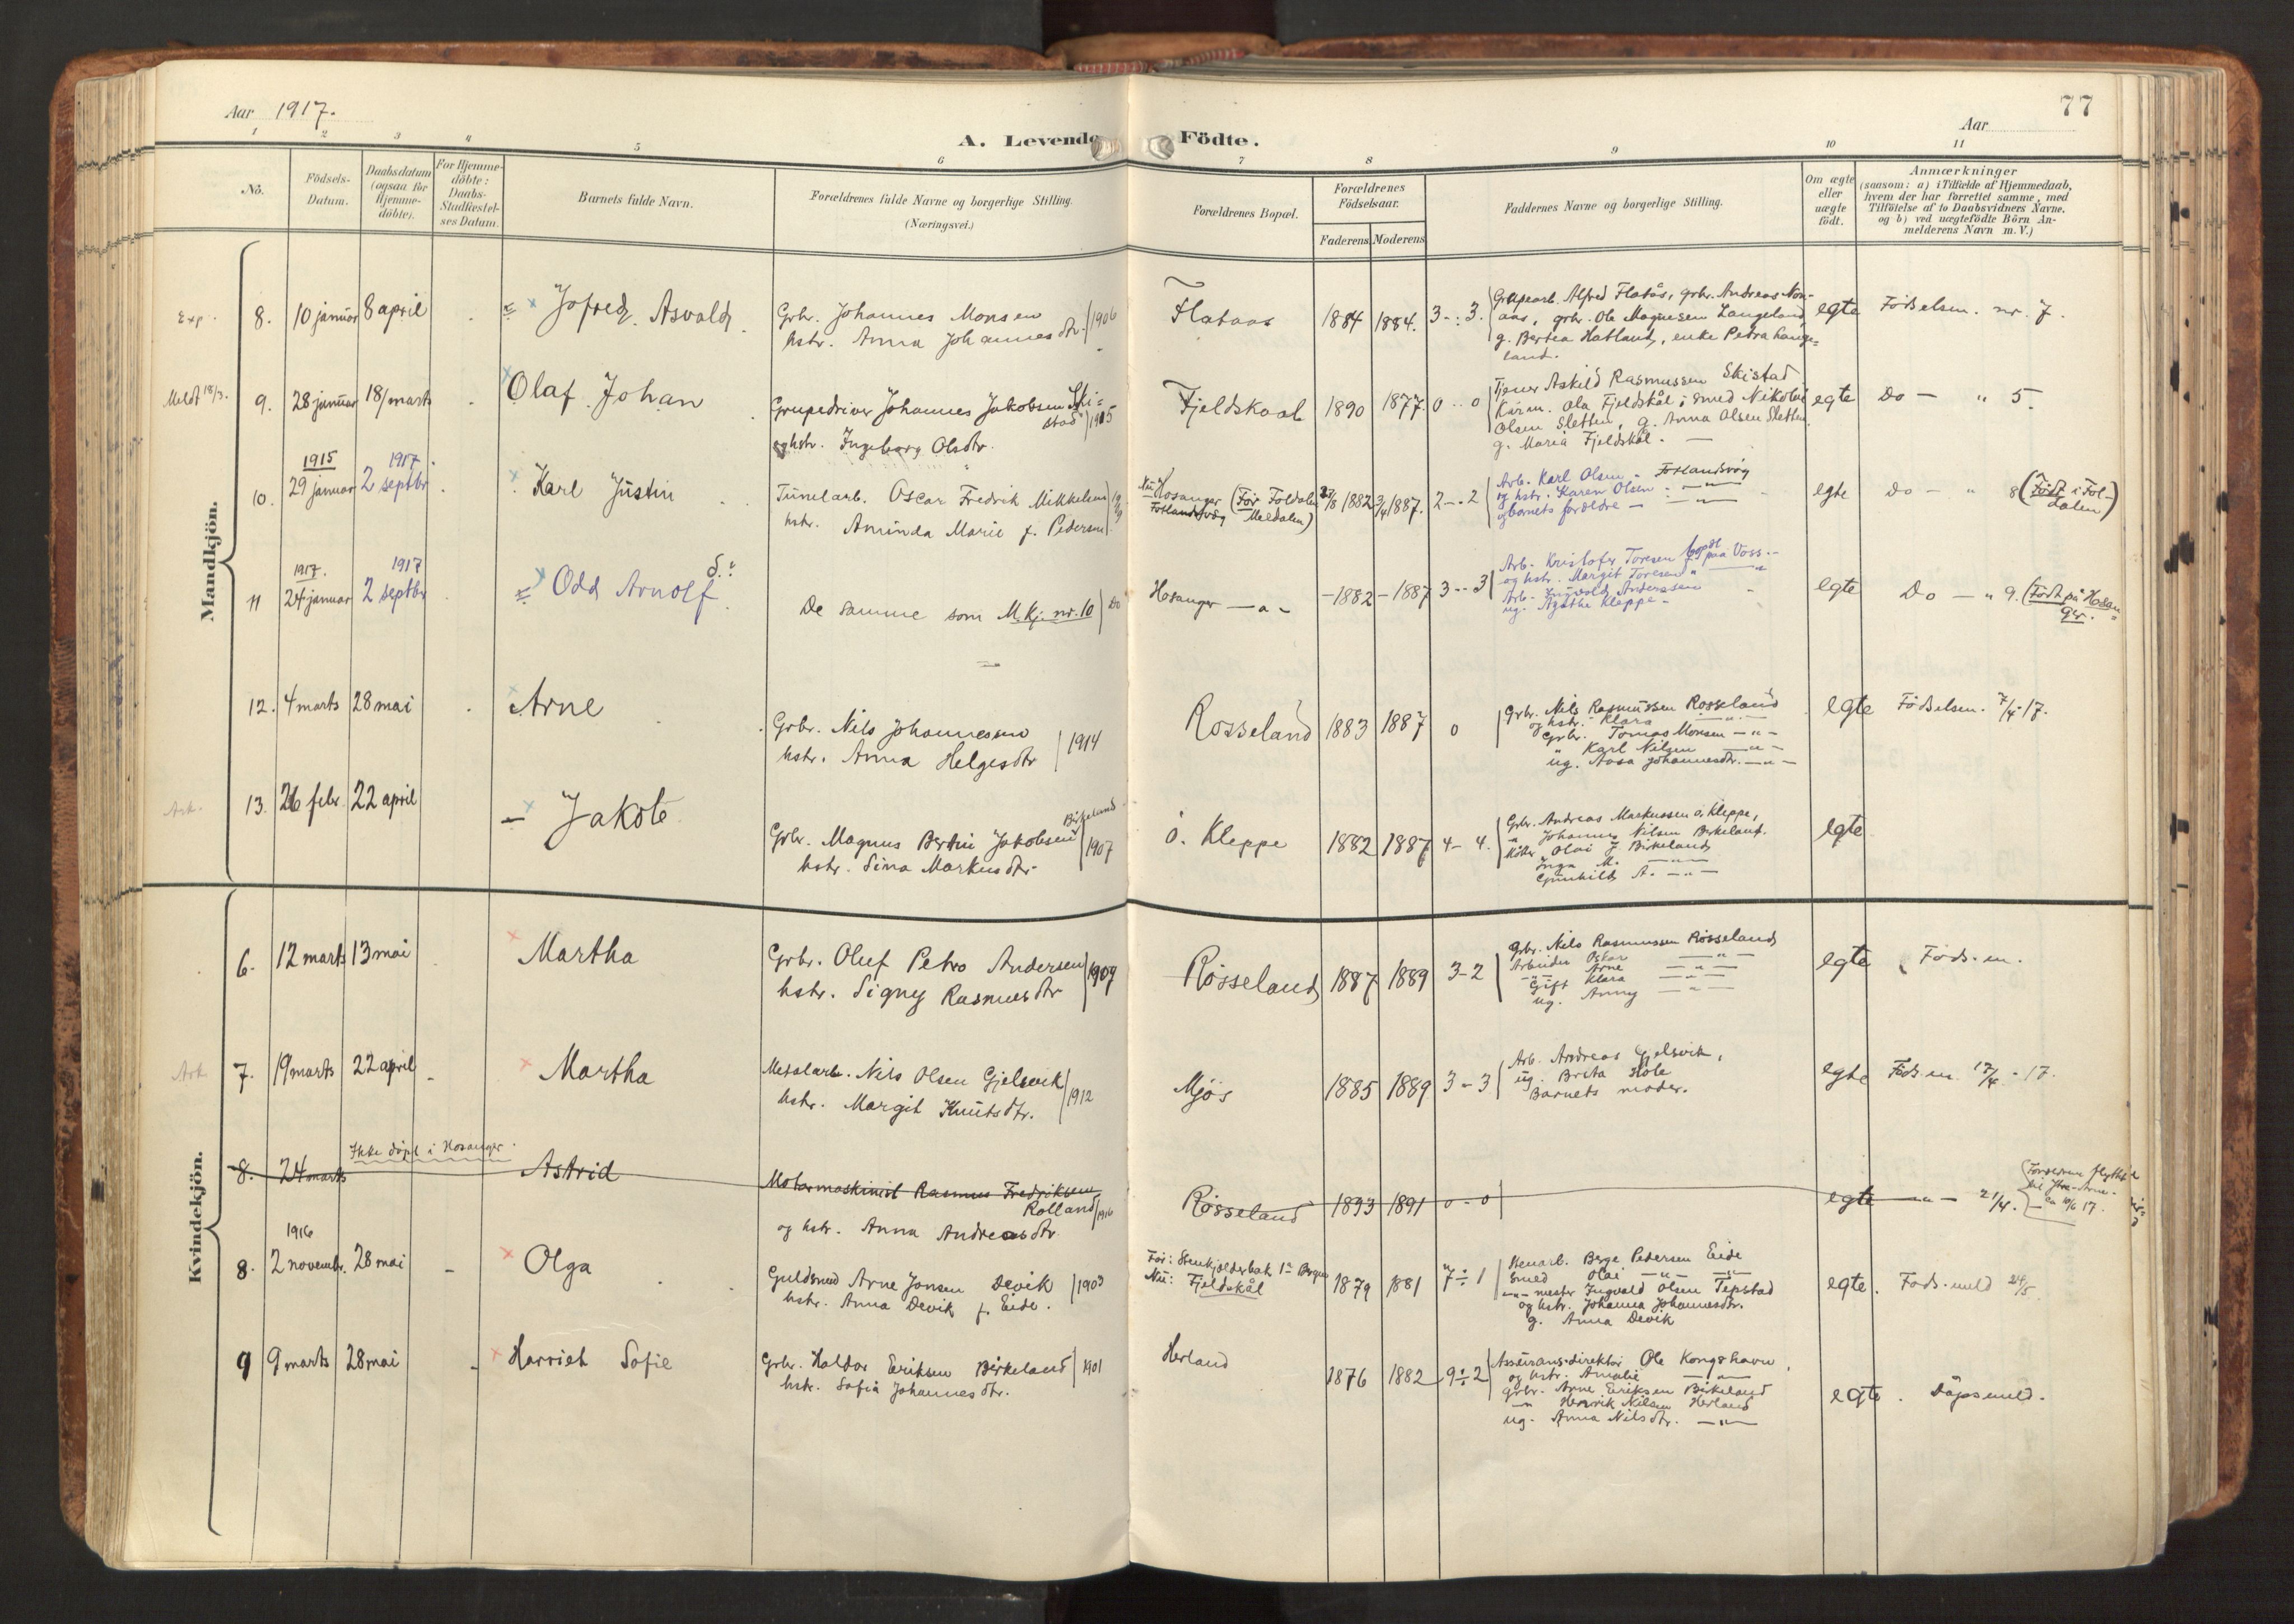 Aar 1917.
77
Aar
A. Levende Födte.
1 2 3 4 5 6 7 8 9 10 11
No.
Födsels-
Datum.
Daabsdatum
(ogsaa for
Hjemme-
döbte).
For Hjemme-
döbte:
Daabs-
Stadfæstel-
ses Datum.
Barnets fulde Navn.
Forældrenes fulde Navne og borgerlige Stilling.
(Næringsvei.)
Forældrenes Bopæl.
Forældrenes
Födselsaar.
Faderens. Moderens.
Faddernes Navne og borgerlige Stilling.
Om ægte
eller
uægte
födt.
Anmærkninger
(saasom: a) i Tilfælde af Hjemmedaab,
hvem der har forrettet samme, med
Tilföielse af to Daabsvidners Navne.
og b) ved uægtefödte Börn An-
melderens Navn m. V.)
Mandkjön.
Exp. 8. 10 januar 8 april
Jofred Asvald
Grbr. Johannes Monsen
hstr. Anna Johannesdtr. 1906
Flataas
1884 1884. 3 - 3.
Grupearb. Alfred Flatås, grbr. Andreas Mon-
aas, grbr. Ole Magnesen Langeland
g. Bertea Hatland, enke Petra Lange-
land.
egte
Födselsm. nr. 7.
Meldt 18/3. 9. 28 januar 18/marts
Olaf Johan
Grupedriver Johannes Jakobsen Ski-
stad 1915
og hstr. Ingeborg Olsdtr.
Fjeldskaal
1890 1877. 0 - 0
Tjener Askild Rasmussen Skistad
Olsen Sletten, g. Anna Olsen Sletten
g. Maria Fjeldskål.
egte
Do — " 5.
10. 1915 29 januar 1917 2 septbr
Karl Justin
Tunelarb. Oscar Fredrik Mikkelsen
hstr. Aminda Marie f. Pedersen
Nu Hosanger (Før Foldalen
Fotlandsvåg Meldalen)
1882 1887. 2 - 2
Arb. Karl Olsen - Fotlandsvåg
og hstr. Karen Olsen - " -
og barnets forældre - " -
egte
Do — " 8 (Födt i Fol-
dalen)
11 1917. 24 januar 1917 2 septbr
Odd Arnolf
De samme som M.kj. nr. 10 Do
Hosanger — " -
-1882 -1887 3 - 3
Arb. Kristofer Toresen bopæl paa Voss.
og hstr. Margit Toresen " — "
Arb. Ingvald Anderssen
ug. Agathe Kleppe -
egte
Do — " 9. (Födt på Hosan-
ger.
12. 4 marts 28 mai
Arne
Grbr. Nils Johannessen
hstr. Anna Helgesdtr 1914
Rosseland
1883 1887 0
Grbr. Nils Rasmussen Rosseland
og hstr. Klara — " —
Grbr. Tomas Monsen — " —
" Karl Nilsen — " —
ug. Aasa Johannesdtr. — " —
egte
Födselsm. 7/4-17.
13. 26 febr. 22 april
Jakob
Birkeland
Grbr. Magnus Bertin Jakobsen
hstr. Sina Markusdtr. 1907
ö. Kleppe
1882 1887 4 - 4.
Grbr. Andreas Markussen ö. Kleppe,
" Johannes Nilsen Birkeland.
Olai J Birkeland
Inga M. — " —
Gunhild A. — " —
egte
Kvindekjön.
6. 12 marts 13 mai
Martha
Grbr. Oluf Petro Andersen
hstr. Signy Rasmusdtr 1909
Rosseland
1887 1889 3-2
Grbr. Nils Rasmussen Rosseland
Arbeider Oskar — " —
— " — Arne — " —
Gift Klara — " —
ug. Anny — " —
egte
Föds.m.
7. 19 marts 22 april
Martha
Metalarb. Nils Olsen Gjelsvik
hstr. Margit Knutsdtr. 1912
Mjøs
1885 1889 3 - 3
Arb. Andreas Gjelsvik,
ug. Brita Hole
Barnets moder.
egte
Föds.m. 17/4 - 17.
8. 24 marts
Ikke døpt i Hosanger.
Astrid
Motormaskinist Rasmus Fredriksen
Rolland 1916
og hstr. Anna Andreasdtr
Rosseland
1893 1891 0 - 0
egte — " — 21/4.
Forældrene flyttet
til Ytre-Arne.
8. 1916 2 novembr. 28 mai
Olga
Guldsmed Arne Jonsen Devik 1903
hstr. Anna Devik f. Eide.
Før: Stenkjelderbak. 12 Bergen
Nu: Fjeldskål
1879 1881 7 ÷ 1
Stenarb. Berge Pedersen Eide
Smed Olai — " — — " —
— " — mester Ingvald Olsen Tepstad
og hstr. Johanna Johannesdtr.
g. Anna Devik
egte.
Føds.meld 24/5.
9 9 marts 28 mai
Harriet Sofie
Grbr. Haldor Eriksen Birkeland 1901
hstr. Sofia Johannesdtr.
Herland
1876 1882 9 ÷ 2
Assuransedirektør Ole Kongshavn
og hstr. Amalie — " —
grbr. Arne Eriksen Birkeland
— " Henrik Nilsen Herland
ug. Anna Nilsdtr. — " —
egte.
Dåpsmeld.